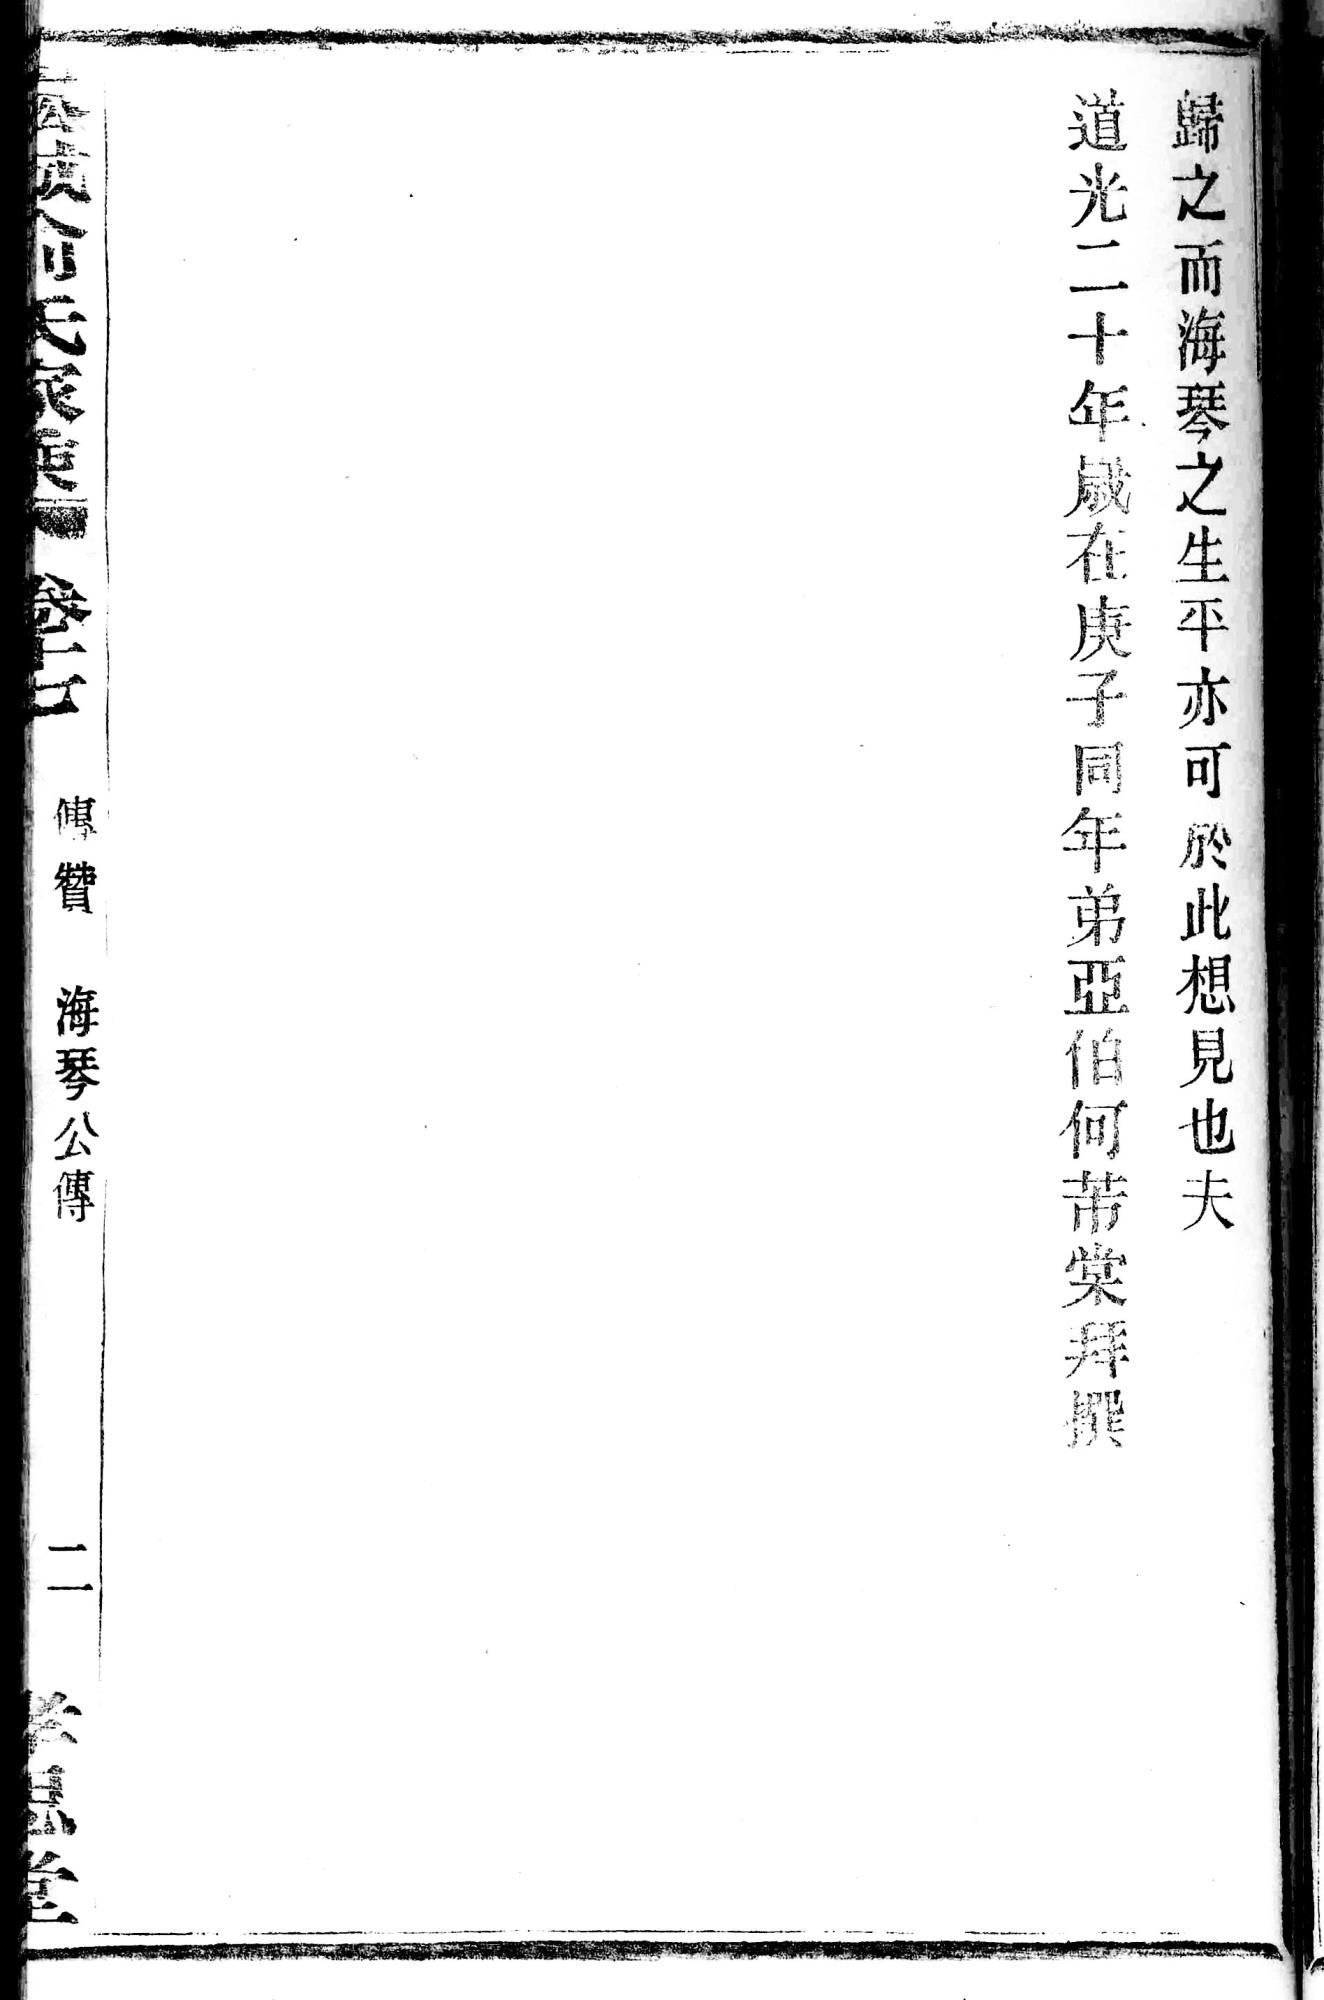 歸之而海琴之生平亦可於此想見也夫
道光二十年歲在庚子同年弟亞伯何芾棠拜撰
氏家乘 卷十七 傳贊 海琴公傳 二 孝思堂